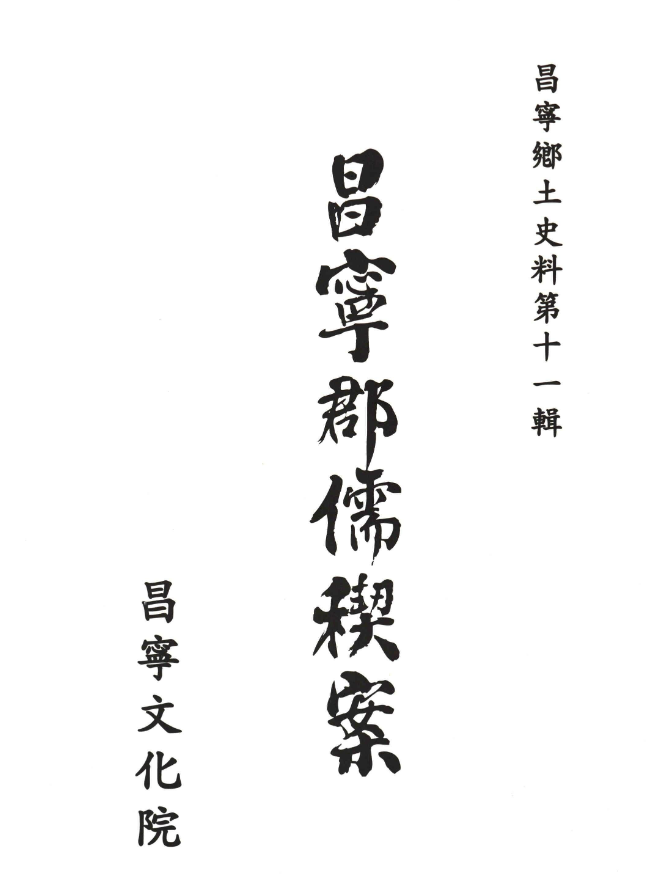 昌寧鄕土史料第十一輯
昌寧郡儒稧案
昌寧文化院